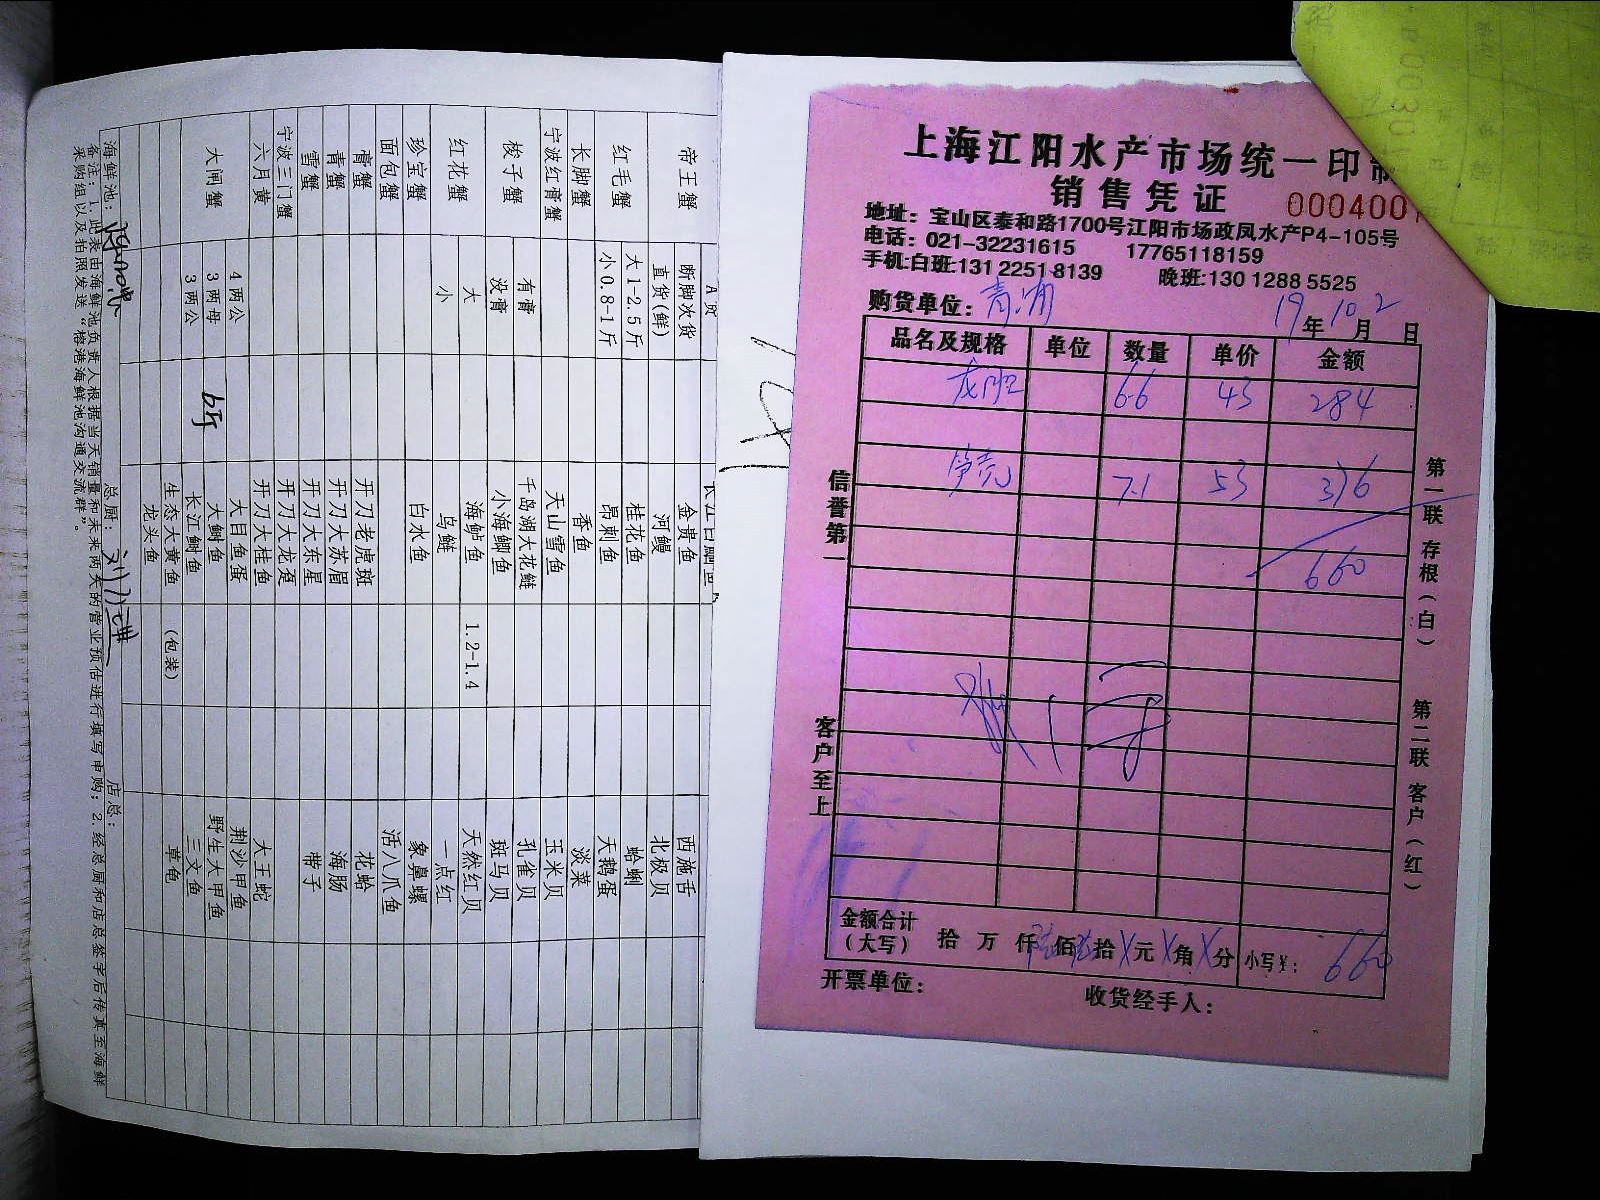 上海江阳水产市场统一印制
销售凭证
000400
地址：宝山区泰和路1700号江阳市场政凤水产P4-105号
电话：021-32231615 17765118159
手机:白班:131 2251 8139 晚班:130 1288 5525
购货单位：
19年10月2日
品名及规格 单位 数量 单价 金额
龙胆 6.6 43 284
笋壳 7.1 53 376
660
信誉第一
客户至上
第一联 存根（白）
第二联 客户（红）
金额合计（大写） 拾 万 仟 佰 拾 元 角 分 小写￥： 660
开票单位：
收货经手人：
A货
帝王蟹 断脚次货 金贵鱼 西施舌
直货(鲜) 河鳗 北极贝
红毛蟹 大1-2.5斤 桂花鱼 蛤蜊
小0.8-1斤 昂刺鱼 天鹅蛋
长脚蟹 香鱼 淡菜
宁波红膏蟹 天山雪鱼 玉米贝
梭子蟹 有膏 千岛湖大花鲢 孔雀贝
没膏 小海鲫鱼 斑马贝
红花蟹 大 海鲈鱼 1.2-1.4 天然红贝
小 乌鲢 一点红
珍宝蟹 白水鱼 象鼻螺
面包蟹 活八爪鱼
膏蟹 开刀老虎斑 花蛤
青蟹 开刀大苏眉 海肠
雪蟹 开刀大东星 带子
宁波三门蟹 开刀大龙趸
六月黄 开刀大桂鱼 大王蛇
大闸蟹 4两公 大目鱼蛋 荆沙甲鱼
3两母 6斤 大鲥鱼 野生大甲鱼
3两公 长江鮰鱼 三文鱼
生态大黄鱼 (包装) 草龟
龙头鱼
海鲜池： 总厨： 店总：
备注：1.此表由海鲜池负责人根据当天销量和未来两天的营业预估进行填写申购；2.经总厨和店总签字后传真至海鲜
采购组以及拍照发送“榕港海鲜池沟通交流群”。